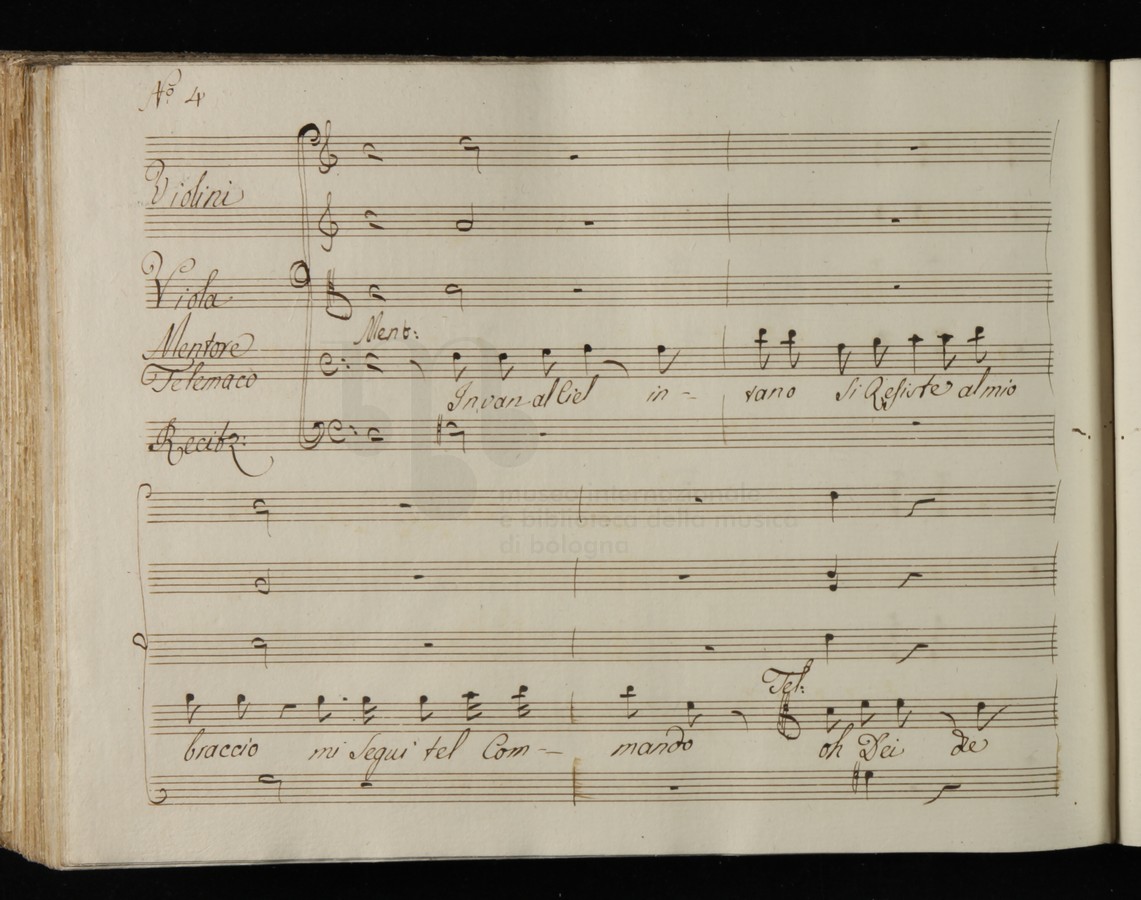 Nº 4
Violini
Viola
Ment:
Mentore
Telemaco
Invan al Ciel in - vano si Resiste al mio
Recitº:
museo internazionale
e biblioteca della musica
di bologna
Tel:
braccio mi Segui tel Com - mando oh Dei de